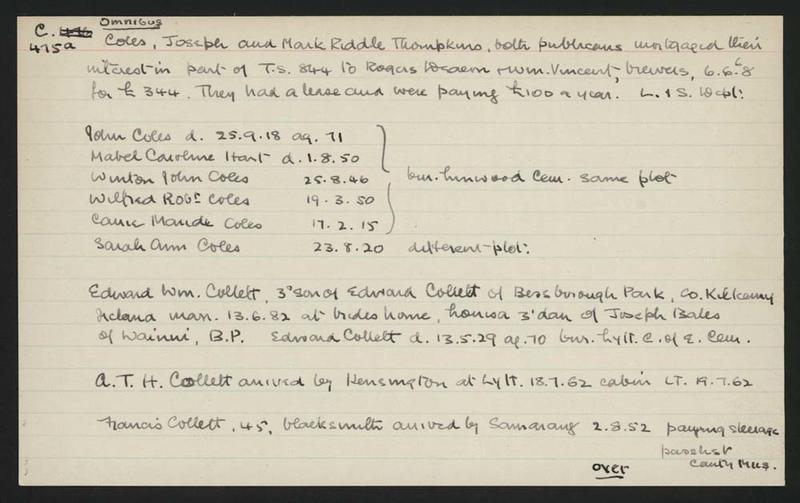 Omnibus
C. 475a Coles, Joseph and Mark Riddle Thompkins, both publicans mortgaged their
interest in part of T.S. 844 to Rogers & Wm. Vincent, brewers, 6.6.68
for £344. They had a lease and were paying £100 a year. L. & S. Dept:
John Coles d. 25.9.18 ag. 71
Mabel Caroline Hart d. 1.8.50
Winton John Coles 25.8.46 bur. Linwood Cem. same plot
Wilfred Robt Coles 19.3.50
Carrie Maude Coles 17.2.15
Sarah Ann Coles 23.8.20 different plot:
Edward Wm. Collett, 3rd son of Edward Collett of Bessborough Park, Co. Kilkenny
Ireland marr. 13.6.82 at brides home, Louisa 3' dau of Joseph Bates
of Wainui, B.P. Edward Collett d. 13.5.29 ag. 70 bur. Lytt. C. of E. Cem.
A. T. H. Collett arrived by Kensington at Lytt. 18.7.62 cabin LT. 19.7.62
Francis Collett, 45, blacksmith arrived by Samarang 2.8.52 paying steerage
pass list
Canty Mus.
over